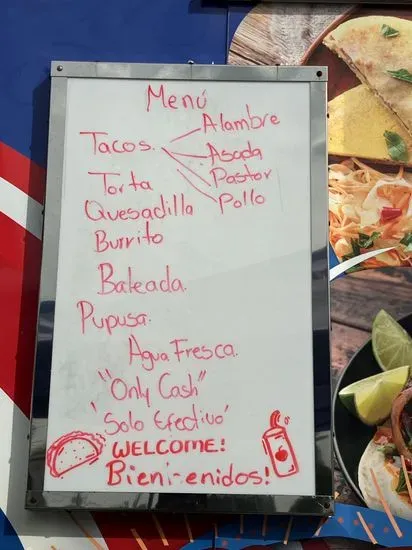 Menú
Tacos. Alambre
Asada
Torta Pastor
Quesadilla Pollo
Burrito
Baleada.
Pupusa.
Agua Fresca.
"Only Cash"
'Solo Efectivo'
WELCOME!
Bieni-enidos!